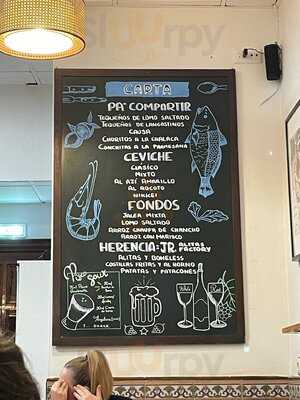 CARTA
PA' COMPARTIR
TEQUEÑOS DE LOMO SALTADO
TEQUEÑOS DE LANGOSTINOS
CAUSA
CHORITOS A LA CHALACA
CONCHITAS A LA PARMESANA
CEVICHE
CLÁSICO
MIXTO
AL AJÍ AMARILLO
AL ROCOTO
NIKKEI
FONDOS
JALEA MIXTA
LOMO SALTADO
ARROZ CHAUFA DE CHANCHO
ARROZ CON MARISCO
HERENCIA:JR. ALITAS FACTORY
ALITAS Y BONELESS
COSTILLAS FRITAS Y AL HORNO
PATATAS Y PATACONES
Pisco
Sour
Wine